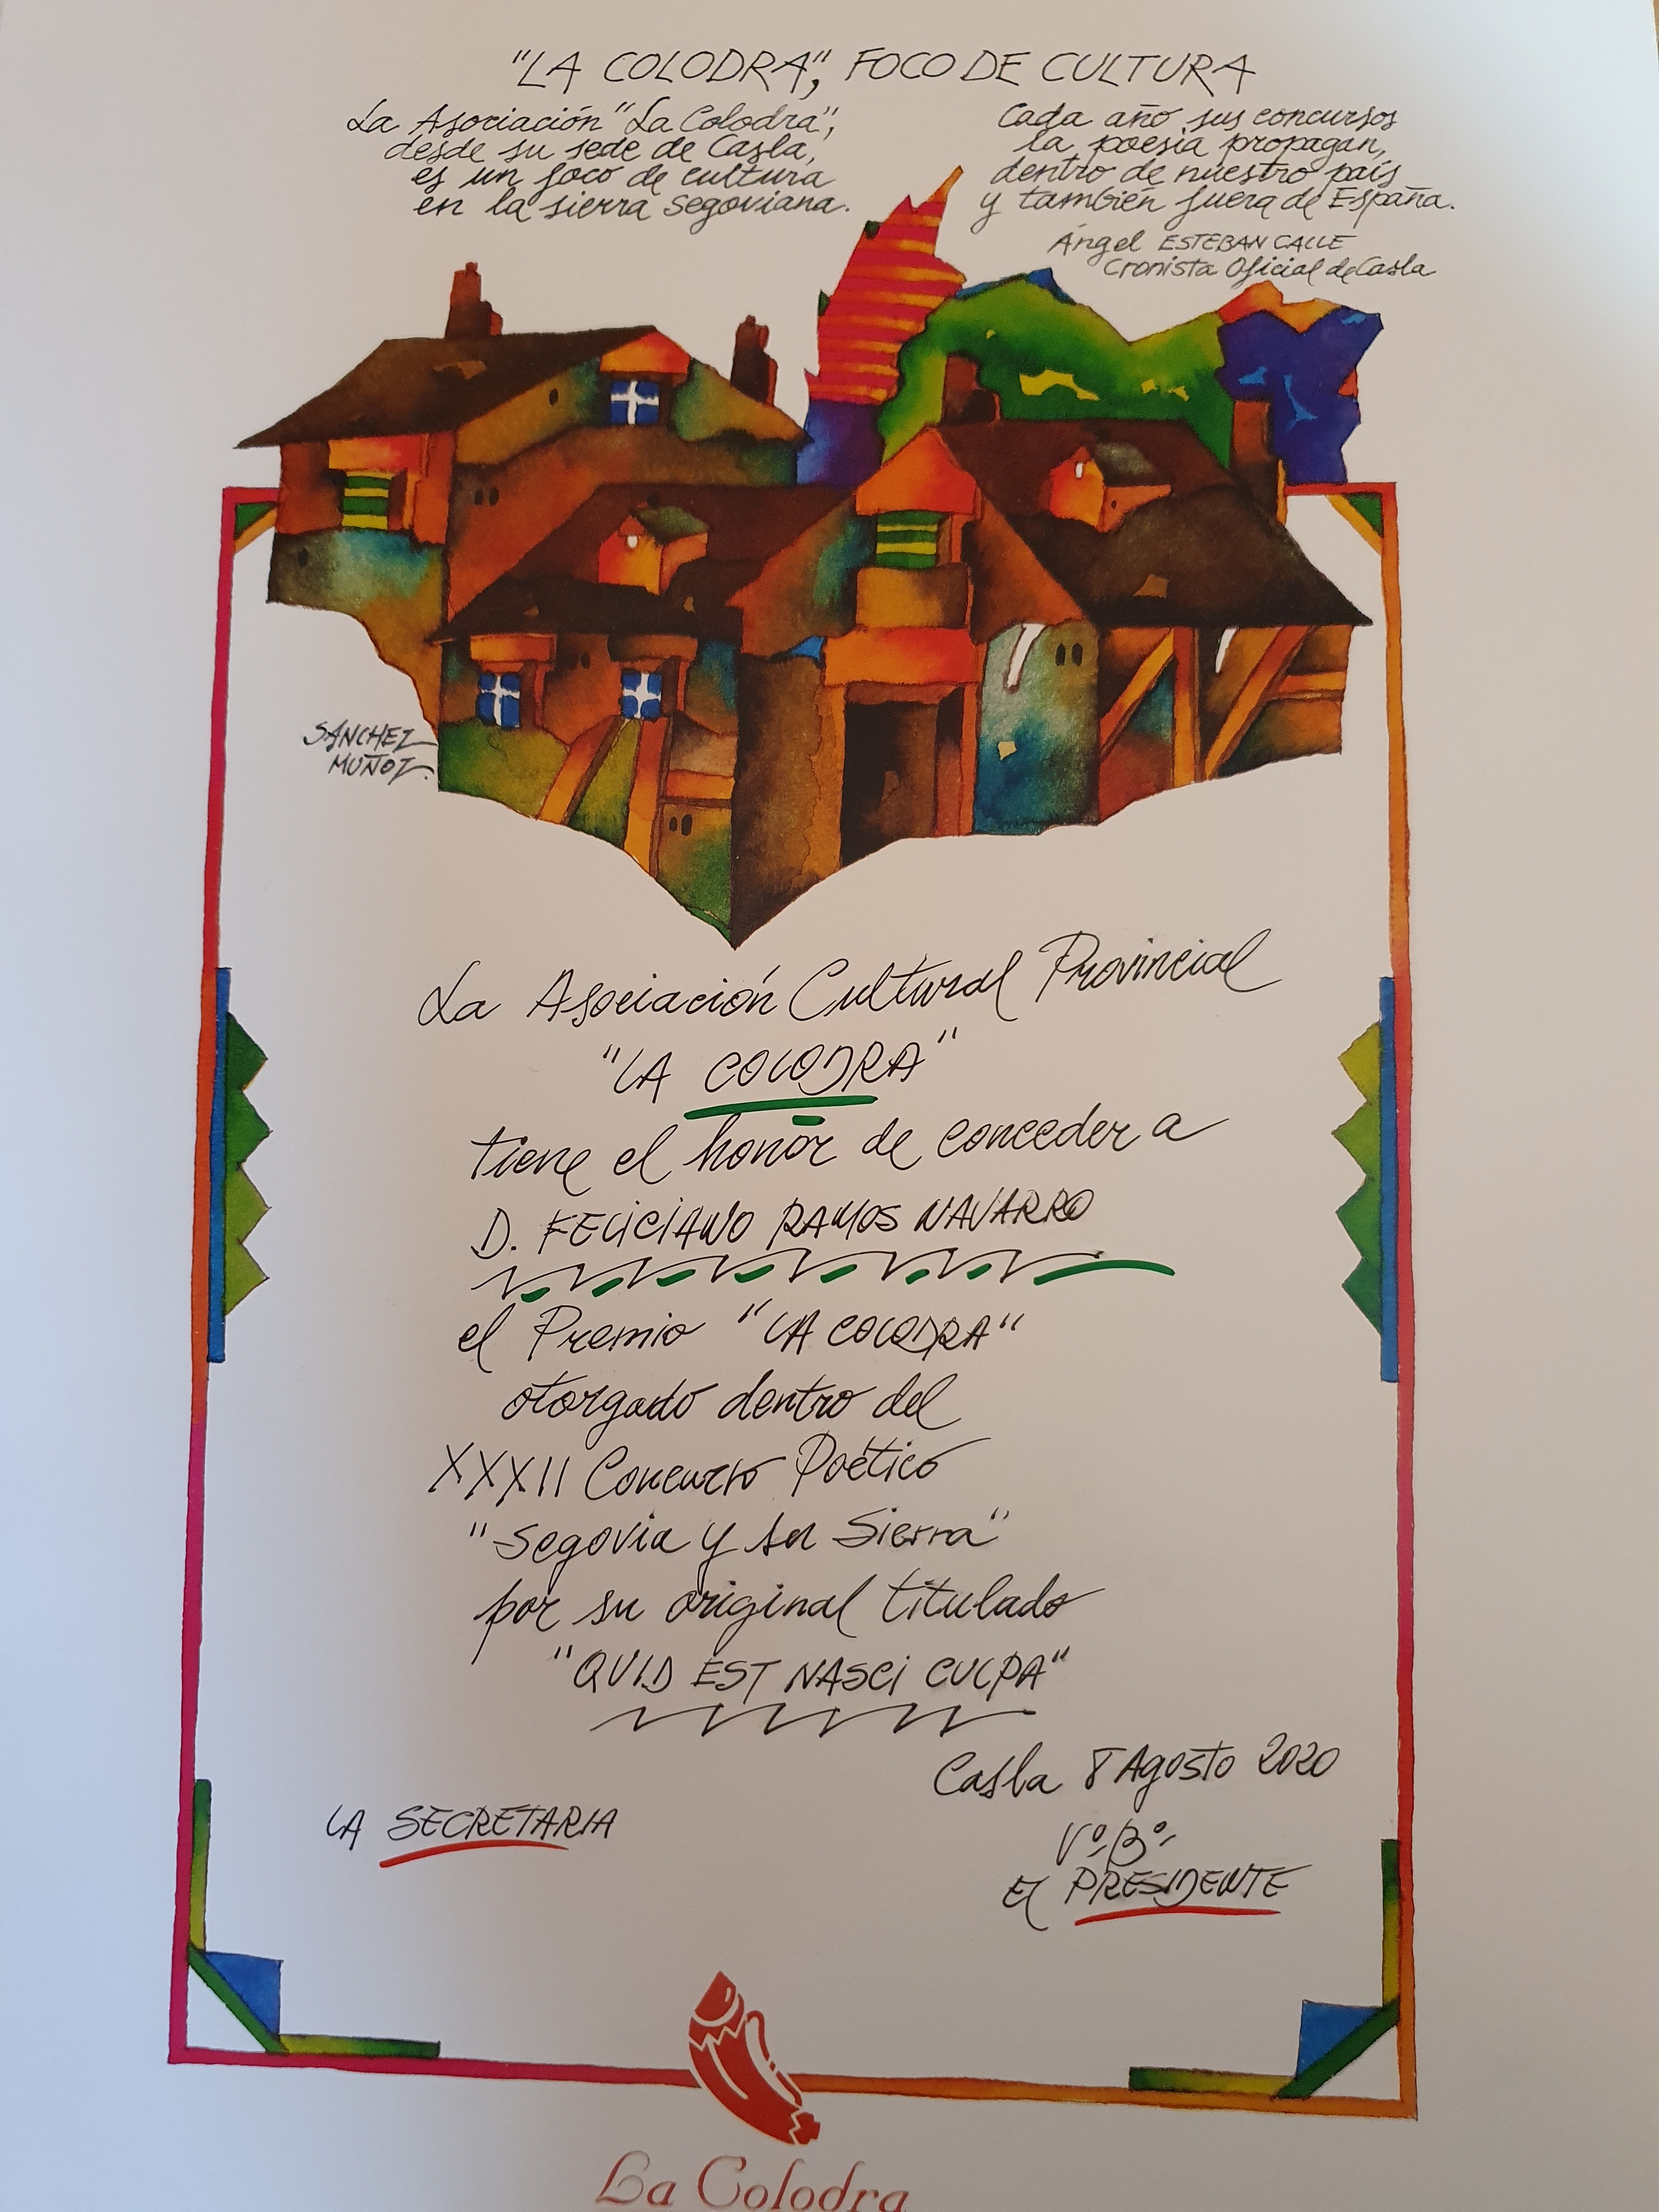 "LA COLODRA", FOCO DE CULTURA
La Asociación "La Colodra",
desde su sede de Casla,
es un foco de cultura
en la sierra segoviana.
Cada año sus concursos
la poesía propagan,
dentro de nuestro país
y también fuera de España.
Ángel ESTEBAN CALLE
Cronista Oficial de Casla
SÁNCHEZ
MUÑOZ.
La Asociación Cultural Provincial
"LA COLODRA"
tiene el honor de conceder a
D. FELICIANO RAMOS NAVARRO
el Premio "LA COLODRA"
otorgado dentro del
XXXII Concurso Poético
"Segovia y su Sierra"
por su original titulado
"QUID EST NASCI CULPA"
Casla 8 Agosto 2020
LA SECRETARIA
Vº Bº
El PRESIDENTE
La Colodra